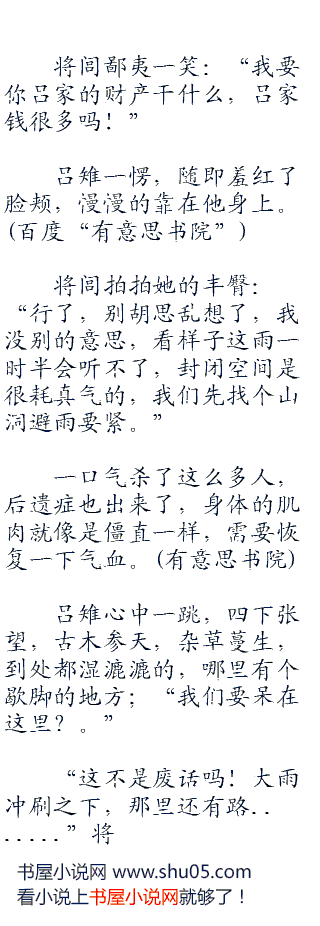 将闾鄙夷一笑：“我要
你吕家的财产干什么，吕家
钱很多吗！”
吕雉一愣，随即羞红了
脸颊，慢慢的靠在他身上。
(百度“有意思书院”)
将闾拍拍她的丰臀：
“行了，别胡思乱想了，我
没别的意思，看样子这雨一
时半会听不了，封闭空间是
很耗真气的，我们先找个山
洞避雨要紧。”
一口气杀了这么多人，
后遗症也出来了，身体的肌
肉就像是僵直一样，需要恢
复一下气血。(有意思书院)
吕雉心中一跳，四下张
望，古木参天，杂草蔓生，
到处都湿漉漉的，哪里有个
歇脚的地方；“我们要呆在
这里？。”
“这不是废话吗！大雨
冲刷之下，那里还有路..
.....”将
书屋小说网 www.shu05.com
看小说上书屋小说网就够了！